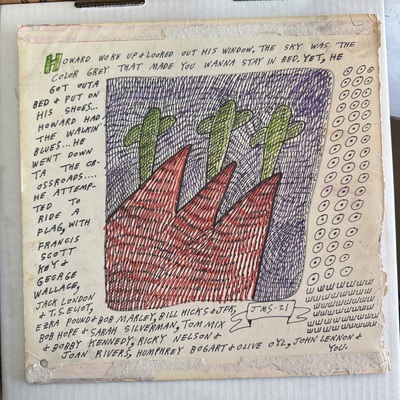 HOWARD WOKE UP & LOOKED OUT HIS WINDOW, THE SKY WAS THE
COLOR GREY THAT MADE YOU WANNA STAY IN BED. YET, HE
GOT OUTA
BED & PUT ON
HIS SHOES...
HOWARD HAD
THE WALKIN'
BLUES... HE
WENT DOWN
TA THE CR-
OSSROADS....
HE ATTEMP-
TED TO
RIDE A
FLAG, WITH
FRANCIS
SCOTT
KEY &
GEORGE
WALLACE,
JACK LONDON
& T.S. ELIOT,
EZRA POUND & BOB MARLEY, BILL HICKS & JFK,
BOB HOPE & SARAH SILVERMAN, TOM MIX
& BOBBY KENNEDY, RICKY NELSON &
JOAN RIVERS, HUMPHREY BOGART & OLIVE OYL, JOHN LENNON &
YOU.
JMS-21